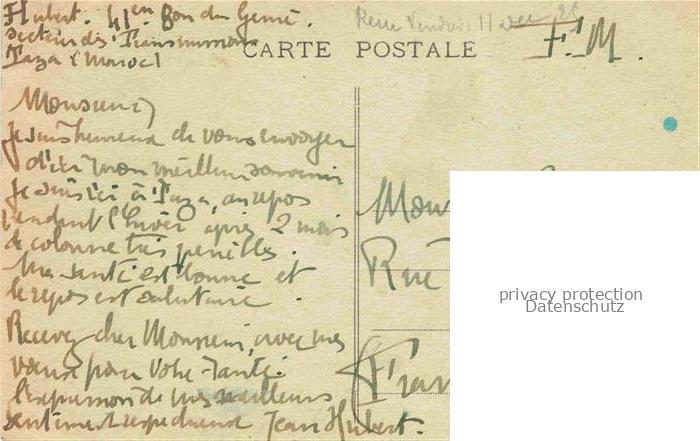 Hubert. 41en Bon du Génie.
Secteur des Transmissions
Taza (Maroc)
Reçu Vendredi 11
F.M.
CARTE POSTALE
Monsieur,
Je suis heureux de vous envoyer
d'ici mon meilleur souvenir
Je suis ici, à Taza, au repos
pendant l'hiver après 2 mois
de colonne très pénibles.
Ma santé est bonne et
le repos est salutaire.
Recevez cher Monsieur, avec mes
vœux pour votre santé.
l'expression de mes meilleurs
sentiments respectueux Jean Hubert.
Rue
privacy protection
Datenschutz